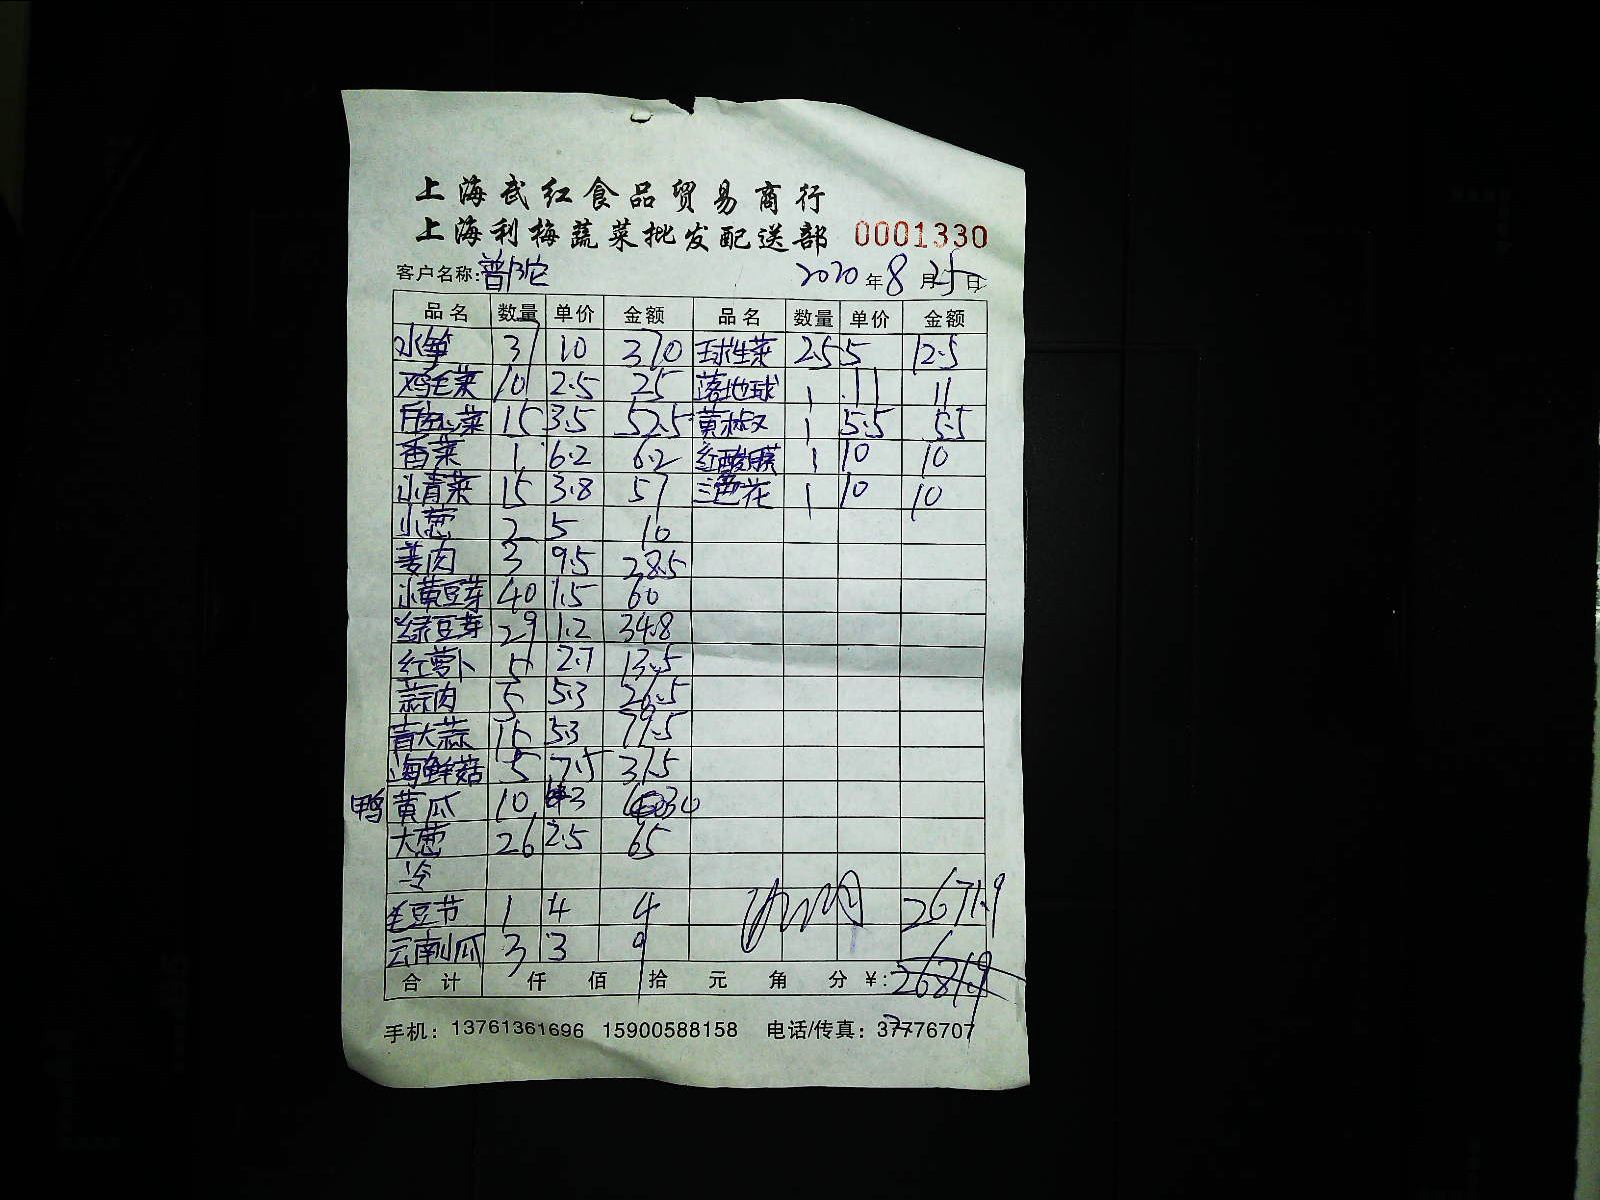 上海武红食品贸易商行
上海利梅蔬菜批发配送部 0001330
客户名称:普陀 2020年8月25日
品名 数量 单价 金额 品名 数量 单价 金额
水笋 37 10 370 球生菜 2.5 5 12.5
鸡毛菜 10 2.5 25 落地球 1 11 11
15 3.5 52.5 黄 1 5.5 5.5
香菜 1 6.2 6.2 红酸膜 1 10 10
小青菜 15 3.8 57 三色花 1 10 10
小葱 2 5 10
姜肉 3 9.5 28.5
小黄豆芽 40 1.5 60
绿豆芽 29 1.2 34.8
红萝卜 5 2.7 13.5
蒜肉 5 5.3 26.5
青大蒜 15 5.3 79.5
海鲜菇 5 7.5 37.5
鸭 黄瓜 10 3 30
大葱 26 2.5 65
冷
毛豆节 1 4 4 2671.9
云南小瓜 3 3 9
合计 仟 佰 拾 元 角 分 ¥: 2681.9
手机: 13761361696 15900588158 电话/传真: 37776707